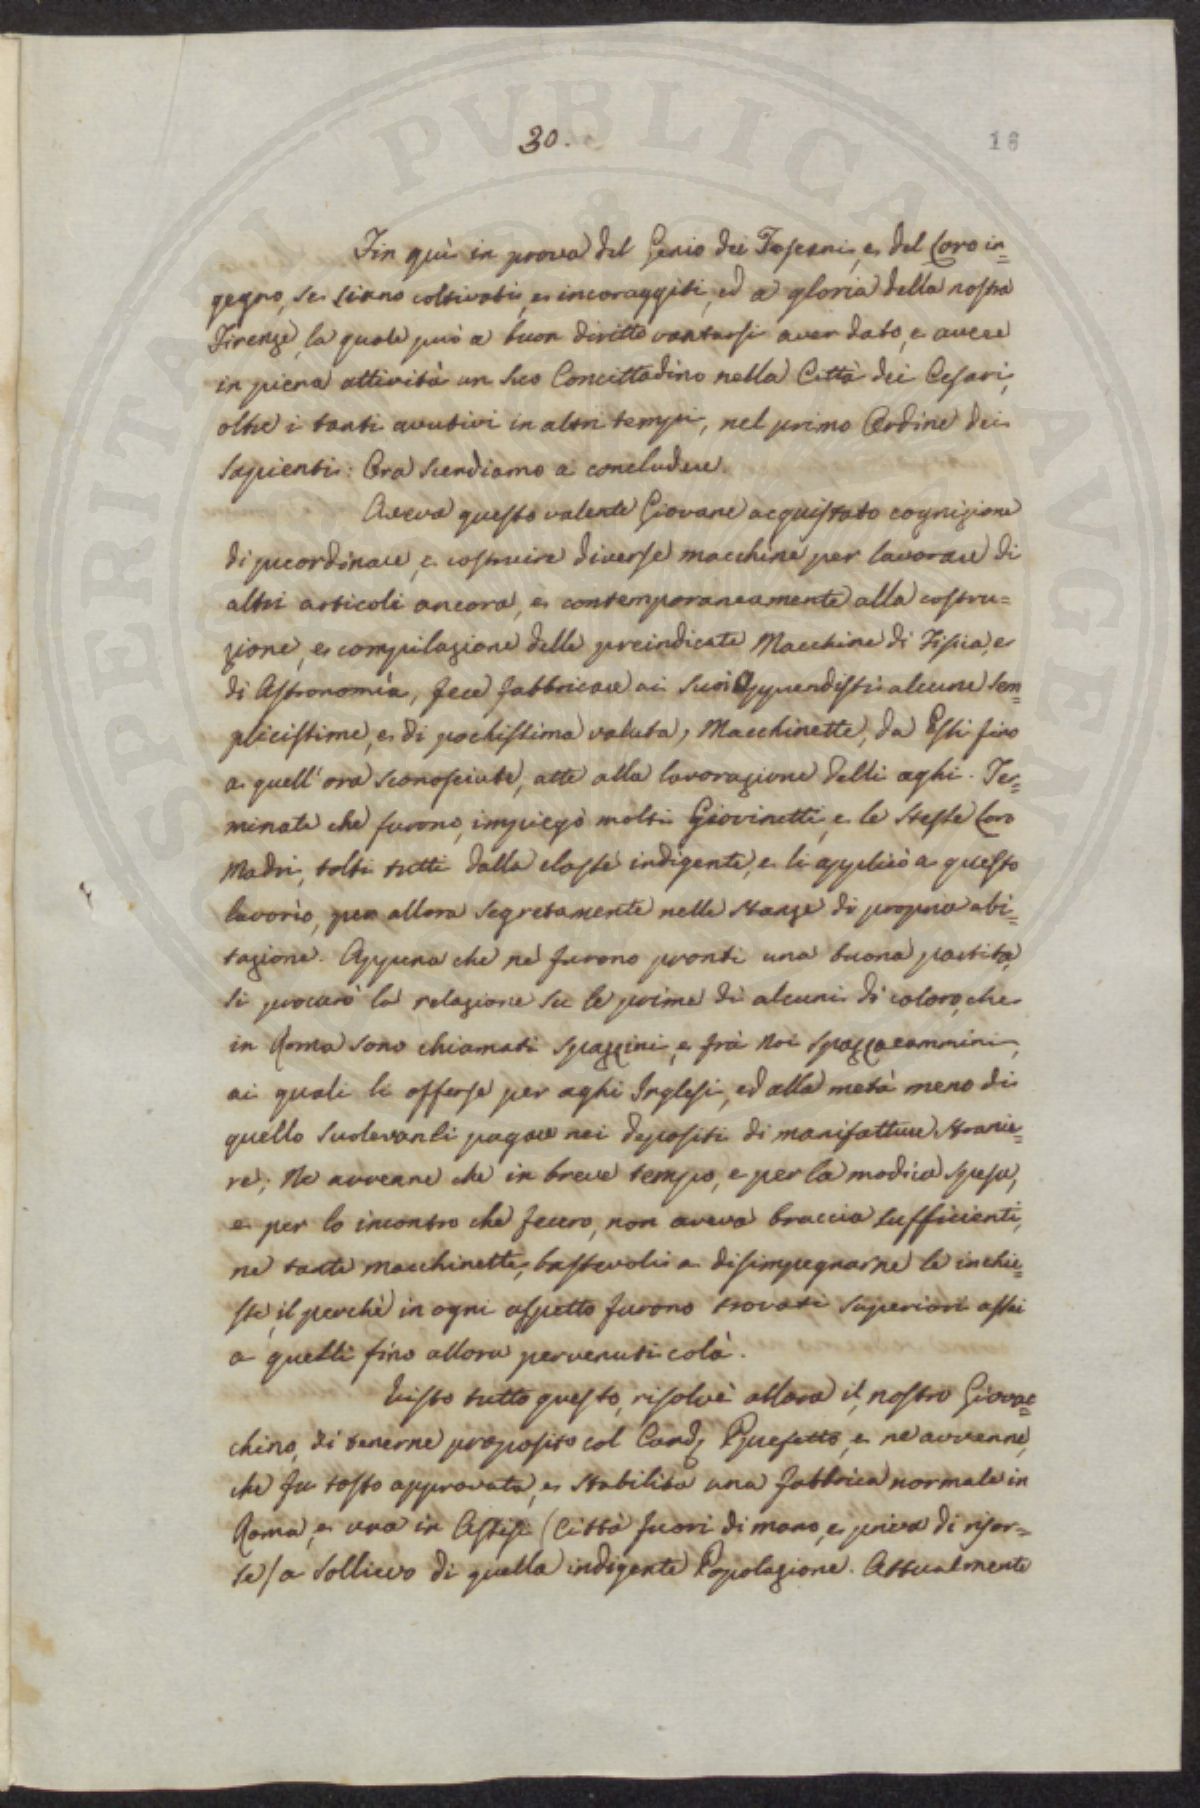 30.
16
Fin quì in prova del Genio dei Toscani, e del Loro in=
gegno, se siano coltivati, e incoraggiti, ed a gloria della nostra
Firenze, la quale può a buon diritto vantarsi aver dato, e avere
in piena attività un suo Concittadino nella Città dei Cesari,
oltre i tanti avutivi in altri tempi, nel primo Ordine dei
Sapienti: Ora scendiamo a concludere.
Aveva questo valente Giovane acquistato cognizione
di preordinare, e costruire diverse macchine per lavorare di
altri articoli ancora, e contemporaneamente alla costru=
zione, e compilazione delle preindicate Macchine di Fisica, e
di Astronomia, fece fabbricare ai suoi Apprendisti alcune sem=
plicissime, e di pochissima valuta, Macchinette, da Essi fino
a quell'ora sconosciute, atte alla lavorazione delli aghi. Ter=
minate che furono, impiegò molti Giovinetti, e le stesse Loro
Madri, tolti tutti dalla classe indigente, e li applicò a questo
lavorìo, per allora segretamente nelle stanze di propria abi=
tazione. Appena che ne furono pronti una buona partita,
si procurò la relazione su le prime di alcuni di coloro, che
in Roma sono chiamati Spazzini, e frà Noi Spazzacammini,
ai quali li offerse per aghi Inglesi, ed alla metà meno di
quello suolevanli pagare nei depositi di manifatture stranie=
re; Ne avvenne che in breve tempo, e per la modica spesa,
e per lo incontro che fecero, non aveva braccia sufficienti,
ne tante macchinette, bastevoli a disimpegnarne le inchie=
ste, il perchè in ogni aspetto furono trovati superiori assai
a quelli fino allora pervenuti colà.
Visto tutto questo, risolvè allora il nostro Giovac=
chino, di tenerne proposito col Card. Prefetto, e ne avvenne,
che fu tosto approvata, e stabilita una fabbrica normale in
Roma, e una in Assisi (Città fuori di mano, e priva di risor=
se) a sollievo di quella indigente Popolazione. Attualmente